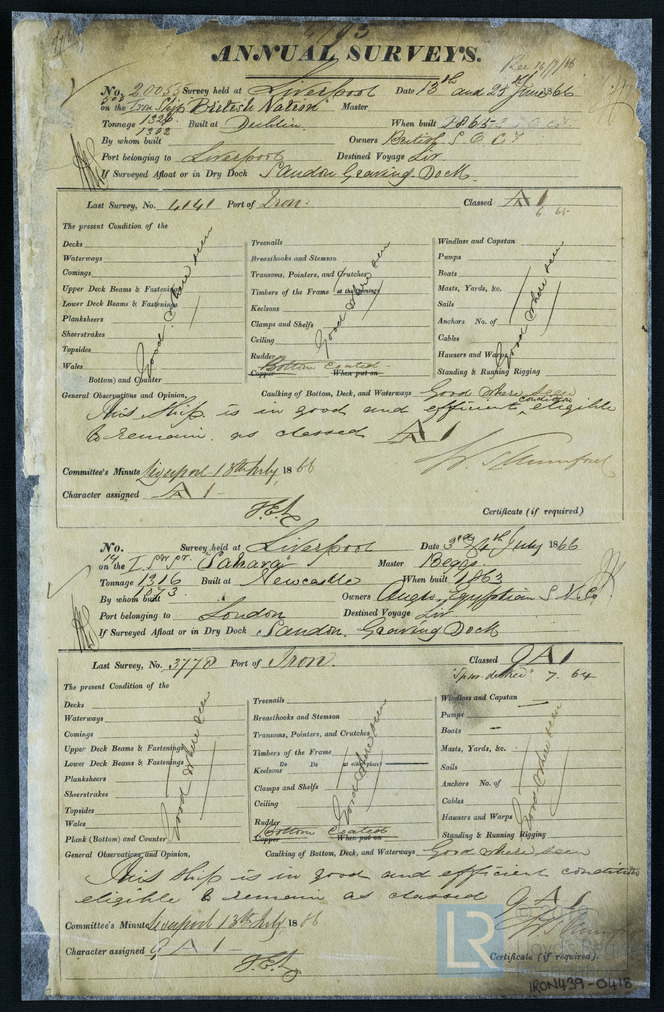 ANNUAL SURVEYS.
No. 20055 Survey held at Liverpool Date 13th and 25th June 1866
on the Iron Ship "British Nation" Master
Tonnage 1326 Built at Dublin When built 1865
1302
By whom built Owners British S. O. Co. L
Port belonging to Liverpool Destined Voyage Liv
If Surveyed Afloat or in Dry Dock Sandon Graving Dock
Last Survey, No. 4141 Port of Iron: Classed A 1
6. 65
The present Condition of the
Decks
Waterways
Comings
Upper Deck Beams & Fastenings
Lower Deck Beams & Fastenings
Planksheers
Sheerstrakes
Topsides
Wales
Bottom) and Counter
Good where seen
Treenails
Breasthooks and Stemson
Transoms, Pointers, and Crutches
Timbers of the Frame
Keelsons
Clamps and Shelfs
Ceiling
Rudder
Bottom Coated
Copper When put on
Good where seen
Windlass and Capstan
Pumps
Boats
Masts, Yards, &c.
Sails
Anchors No. of
Cables
Hawsers and Warps
Standing & Running Rigging
Good where seen
General Observations and Opinion, Caulking of Bottom, Deck, and Waterways Good where seen
This ship is in good and efficient condition eligible
to remain as classed A 1
Committee's Minute Liverpool 18th July 1866
Character assigned A 1
Certificate (if required)
No. Survey held at Liverpool Date 3rd 4th July 1866
on the "Sahara" Master Beggs
Tonnage 1316 Built at Newcastle When built 1863
1073
By whom built Owners Anglo Egyptian S. N. Co
Port belonging to London Destined Voyage Liv
If Surveyed Afloat or in Dry Dock Sandon Graving Dock
Last Survey, No. 3778 Port of Iron. Classed A 1
"Spar decked" 7. 64
The present Condition of the
Decks
Waterways
Comings
Upper Deck Beams & Fastenings
Lower Deck Beams & Fastenings
Planksheers
Sheerstrakes
Topsides
Wales
Plank (Bottom) and Counter
Good where seen
Treenails
Breasthooks and Stemson
Transoms, Pointers, and Crutches
Timbers of the Frame
Do Do at other place
Keelsons
Clamps and Shelfs
Ceiling
Rudder
Bottom Coated
Copper When put on
Good where seen
Windlass and Capstan
Pumps
Boats
Masts, Yards, &c.
Sails
Anchors No. of
Cables
Hawsers and Warps
Standing & Running Rigging
Good where seen
General Observations and Opinion, Caulking of Bottom, Deck, and Waterways Good where seen
This ship is in good and efficient condition
eligible to remain as classed A 1
Committee's Minute Liverpool 13th July 1866
Character assigned A 1
Certificate (if required).
LR
IRON439-0418